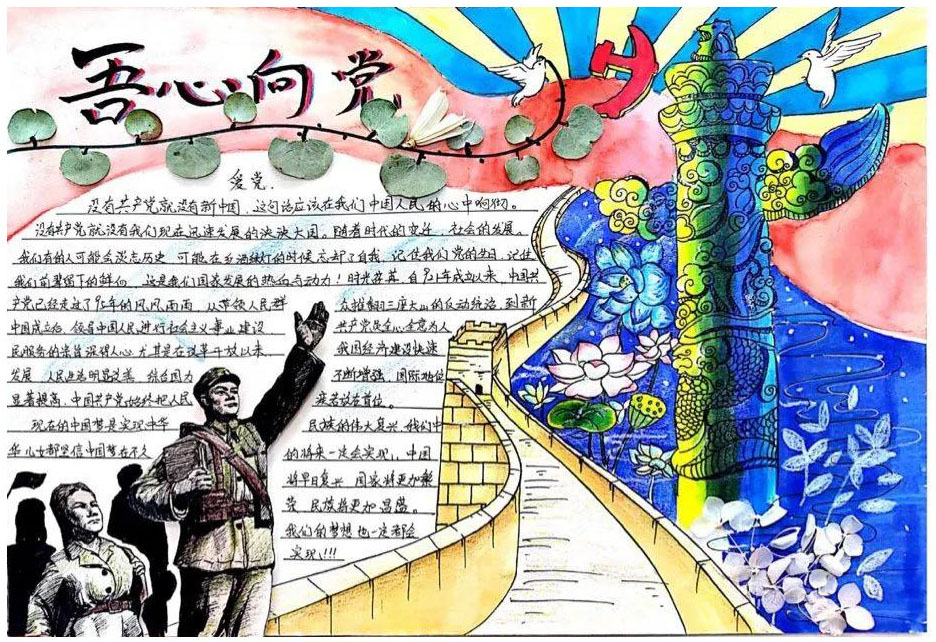 吾心向党
爱党.
没有共产党就没有新中国,这句话应该在我们中国人民的心中响彻。
没有共产党就没有我们现在迅速发展的泱泱大国,随着时代的变迁,社会的发展。
我们有的人可能会淡忘历史,可能在灯红酒绿的时候忘却了自我,记住我们党的生日,记住
我们前辈留下的鲜血,这是我们国家发展的热血与动力!时光荏苒,自21年成立以来,中国共
产党已经走过了95年的风风雨雨,从带领人民群 众推翻三座大山的反动统治,到新
中国成立后,领导中国人民进行社会主义事业建设 共产党员全心全意为人
民服务的宗旨深得人心,尤其是在改革开放以来, 我国经济建设快速
发展,人民生活明显改善,综合国力 不断增强,国际地位
显著提高,中国共产党始终把人民 疾苦放在首位。
现在的中国梦是实现中华 民族的伟大复兴,我们中
华儿女都坚信中国梦在不久 的将来一定会实现,中国
将早日复兴,国家将更加繁
荣,民族将更加昌盛。
我们的梦想也一定都会
实现!!!